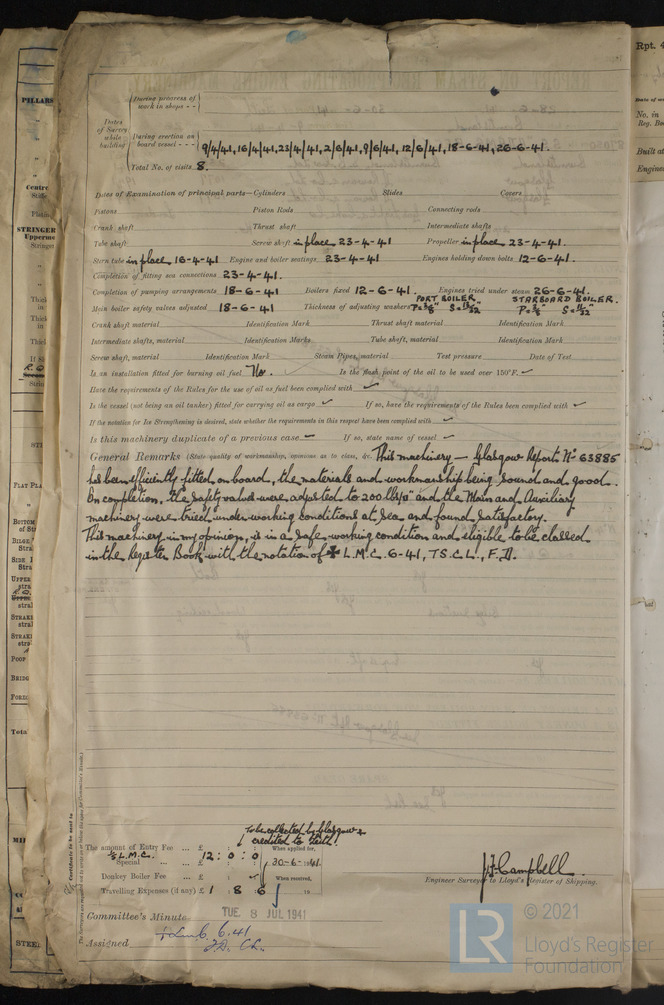 During progress of
work in shops - -
Dates
of Survey
while
building
During erection on
board vessel - - -
9/4/41, 16/4/41, 23/4/41, 2/6/41, 9/6/41, 12/6/41, 18-6-41, 26-6-41.
Total No. of visits 8.
Dates of Examination of principal parts—Cylinders Slides Covers
Pistons Piston Rods Connecting rods
Crank shaft Thrust shaft Intermediate shafts
Tube shaft Screw shaft in place 23-4-41 Propeller in place 23-4-41.
Stern tube in place 16-4-41 Engine and boiler seatings 23-4-41 Engines holding down bolts 12-6-41.
Completion of fitting sea connections 23-4-41.
Completion of pumping arrangements 18-6-41 Boilers fixed 12-6-41. Engines tried under steam 26-6-41.
PORT BOILER STARBOARD BOILER.
Main boiler safety valves adjusted 18-6-41 Thickness of adjusting washers P=3/8" S=13/32" P=3/8" S=11/32
Crank shaft material Identification Mark Thrust shaft material Identification Mark
Intermediate shafts, material Identification Marks Tube shaft, material Identification Mark
Screw shaft, material Identification Mark Steam Pipes, material Test pressure Date of Test
Is an installation fitted for burning oil fuel No. Is the flash point of the oil to be used over 150°F. ✓
Have the requirements of the Rules for the use of oil as fuel been complied with ✓
Is the vessel (not being an oil tanker) fitted for carrying oil as cargo ✓ If so, have the requirements of the Rules been complied with ✓
If the notation for Ice Strengthening is desired, state whether the requirements in this respect have been complied with ✓
Is this machinery duplicate of a previous case ✓ If so, state name of vessel ✓
General Remarks (State quality of workmanship, opinions as to class, &c. This machinery — Glasgow Report No 63885
has been efficiently fitted on board, the materials and workmanship being sound and good.
On completion, the safety valves were adjusted to 200 lbs/□" and the Main and Auxiliary
machinery were tried under working conditions at sea and found satisfactory.
This machinery in my opinion, is in a safe working condition and eligible to be classed
in the Register Book with the notation of ✠ L.M.C. 6-41, T.S.C.L., F.D.
To be collected by Glasgow &
credited to Leith!
The amount of Entry Fee ... £ : : When applied for,
L.M.C.
Special ... £ 12 : 0 : 0 30-6-1941.
Donkey Boiler Fee ... £ : : When received,
Travelling Expenses (if any) £ 1 : 8 : 6 19
J.F. Campbell
Engineer Surveyor to Lloyd's Register of Shipping.
Committee's Minute TUE. 8 JUL 1941
Assigned + L.M.C. 6.41
F.D. C.L.
© 2021
LR Lloyd's Register
Foundation
PILLARS
STRINGER
FLAT
BRIDGE
STEEL
Rpt. 4
No. in
Reg. Book
Built at